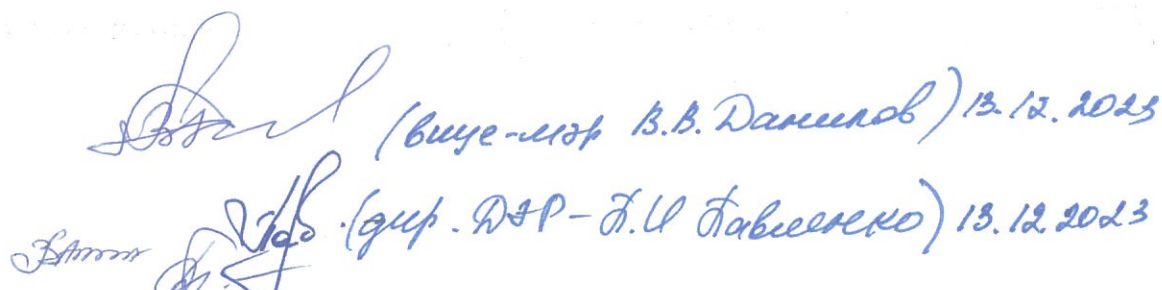 (вице-мэр В.В. Данилов) 13.12.2023
(дир. ДЭР - П.И Павленко) 13.12.2023